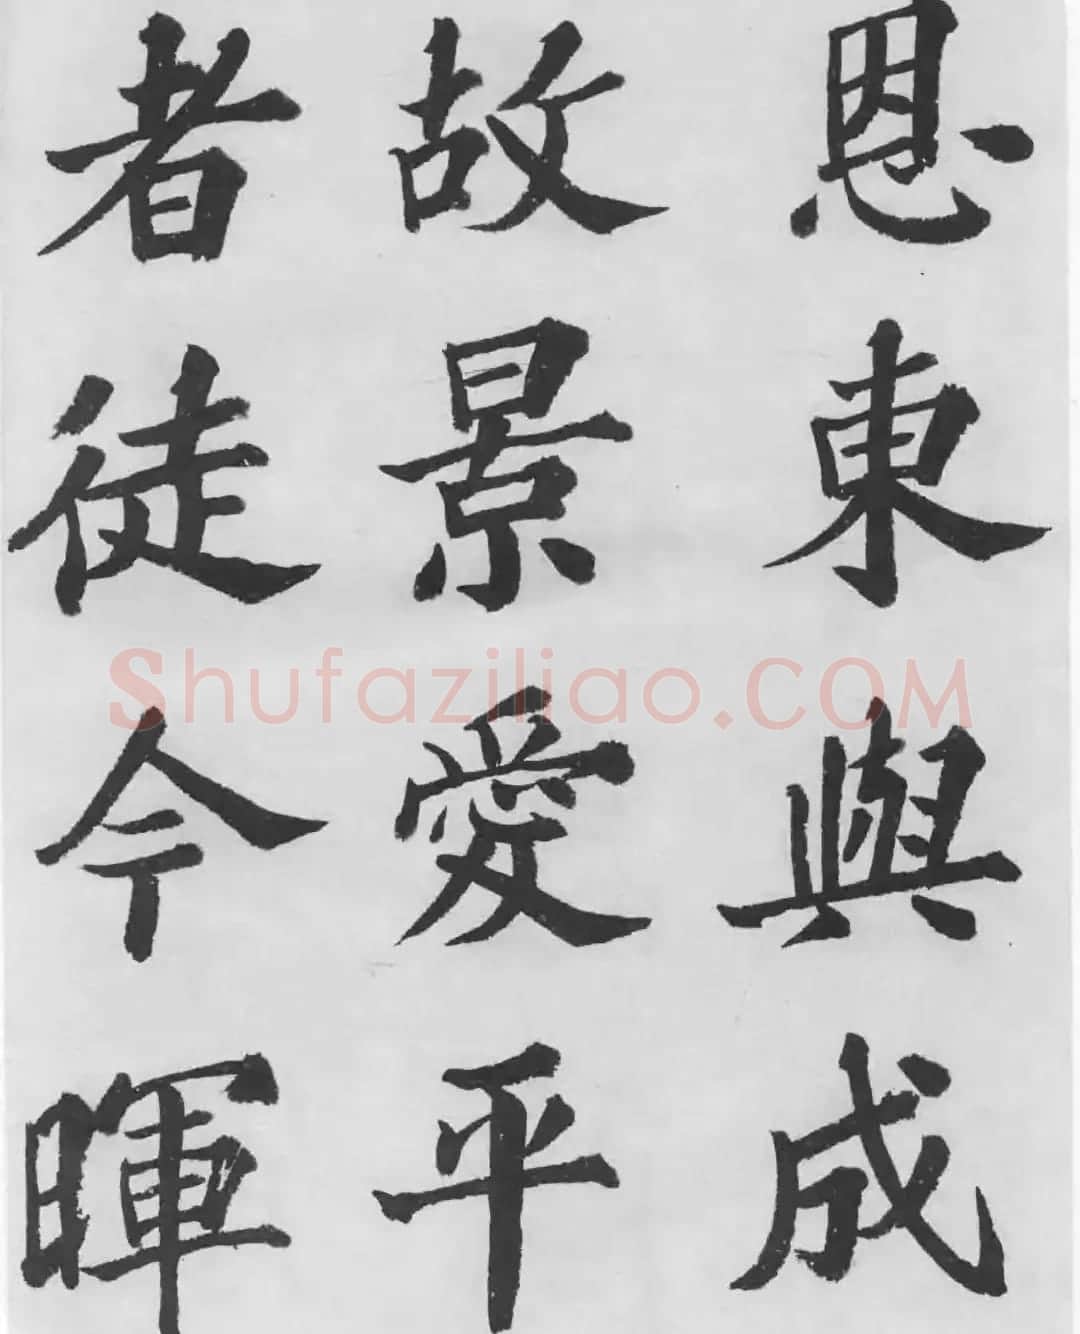 恩東與成
故景愛平
者徒今暉
Shufaziliao.COM